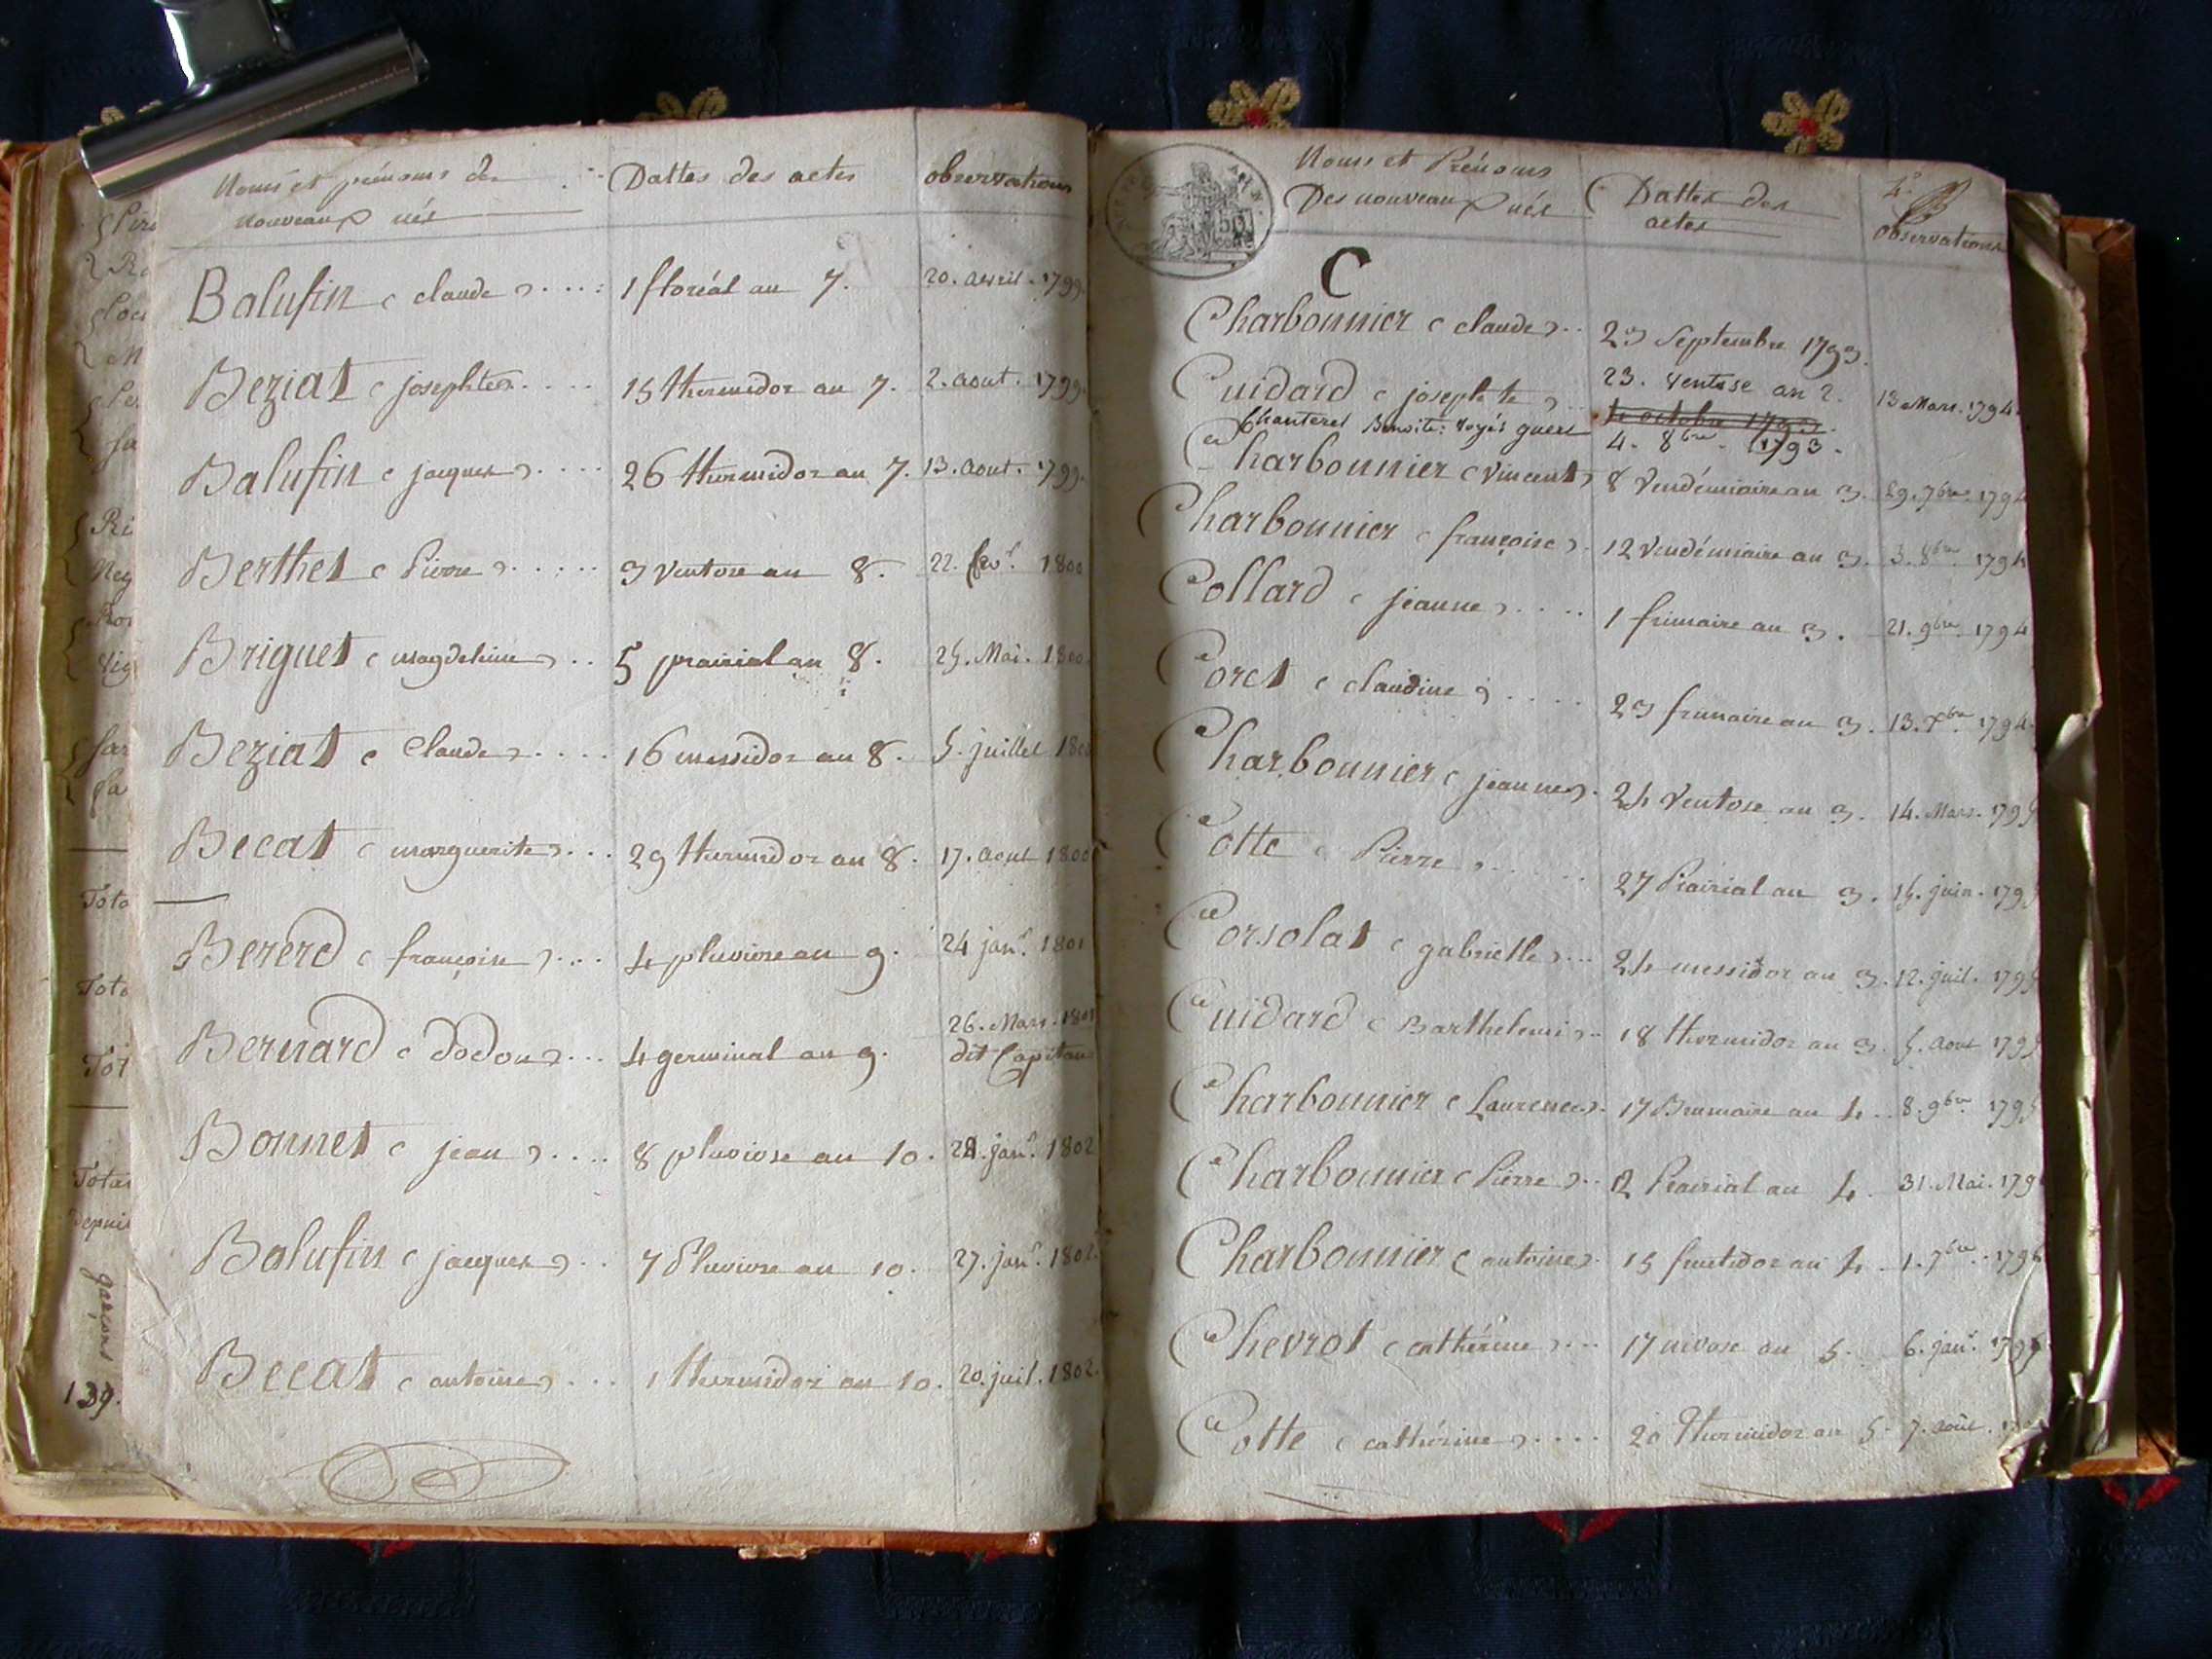 Noms et prénoms des
nouveaux nés
Dattes des actes
observations
Balufin (claude) .... 1 floréal an 7. 20. avril. 1799.
Beziat (josephte) .... 15 thermidor an 7. 2. aout. 1799.
Balufin (jacques) .... 26 thermidor an 7. 13. aout. 1799.
Berthet (Pierre) ..... 3 ventose an 8. 22. fevr. 1800
Briguet (magdeleine) .. 5 prairial an 8. 25. Mai. 1800
Beziat (Claude) .... 16 messidor an 8. 5. juillet 1800
Becat (marguerite) ... 29 thermidor an 8. 17. aout 1800
Bererd (françoise) ... 4 pluviose an 9. 24 janr. 1801
Bernard (dodon) ... 4 germinal an 9. 26. Mars. 1801
dit Capitan
Bonnet (jean) .... 8 pluviose an 10. 28. janr. 1802
Balufin (jacques) .. 7 Pluviose an 10. 27. janr. 1802.
Becat (antoine) ... 1 thermidor an 10. 20. juil. 1802.
Toto
Toto
Tot
Total
Depuis
garçons
139.
Noms et Prénoms
Des nouveaux nés
Dattes des
actes
4e
observations
C
Charbonnier (claude) .. 23 Septembre 1793.
Cuidard (josephte) .. 23. ventose an 2. 13 Mars. 1794.
4 octobre 1793.
Chanteret Benoite: voyés guere 4. 8bre. 1793.
Charbonnier (Vincent) 8 Vendémiaire an 3. 29. 7bre. 1794
Charbonnier (françoise) . 12 Vendémiaire an 3. 3. 8bre. 1794
Collard (jeanne) .... 1 frimaire an 3. 21. 9bre. 1794
Coret (claudine) .... 23 frimaire an 3. 13. Xbre. 1794.
Charbonnier (jeanne) . 24 Ventose an 3. 14. Mars. 1795
Cotte (Pierre) ..... 27 Prairial an 3. 15. juin. 1795
Corsolat (gabrielle) ... 24 messidor an 3. 12. juil. 1795
Cuidard (Barthelemi) .. 18 thermidor an 3. 5. aout 1795
Charbonnier (Laurence) . 17 Brumaire an 4. 8. 9bre. 1795
Charbonnier (Pierre) .. 12 Prairial an 4. 31. Mai. 179
Charbonnier (antoine) . 15 fructidor an 4. 1. 7bre. 1796
Chevrot (cathérine) ... 17 nivose an 5. 6. janr. 1797
Cotte (cathérine) .... 20 Thermidor an 5. 7. août.